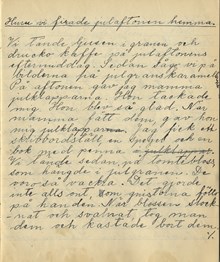 Huru vi firade julaftonen hemma.
Vi tände ljusen i granen och
drucko kaffe på julaftonens
eftermiddag. Sedan sågo vi på
bilderna på julgranskaramell
På aftonen gav jag mamma
julklapparna. Hon tackade
mig. Hon blev så glad. När
mamma fått dem, gav hon
mig julklapparna. Jag fick ett
skrivbordsställ, en ljusgul och en
bok med penna i julklappar.
Vi tände sedan på tomtebloss,
som hängde i julgranen. De
voro så vackra. Det gjorde
inte alls ont, om gnistorna föllo
på handen. När blossen slock-
nat och svalnat, tog man
dem och kastade bort dem.